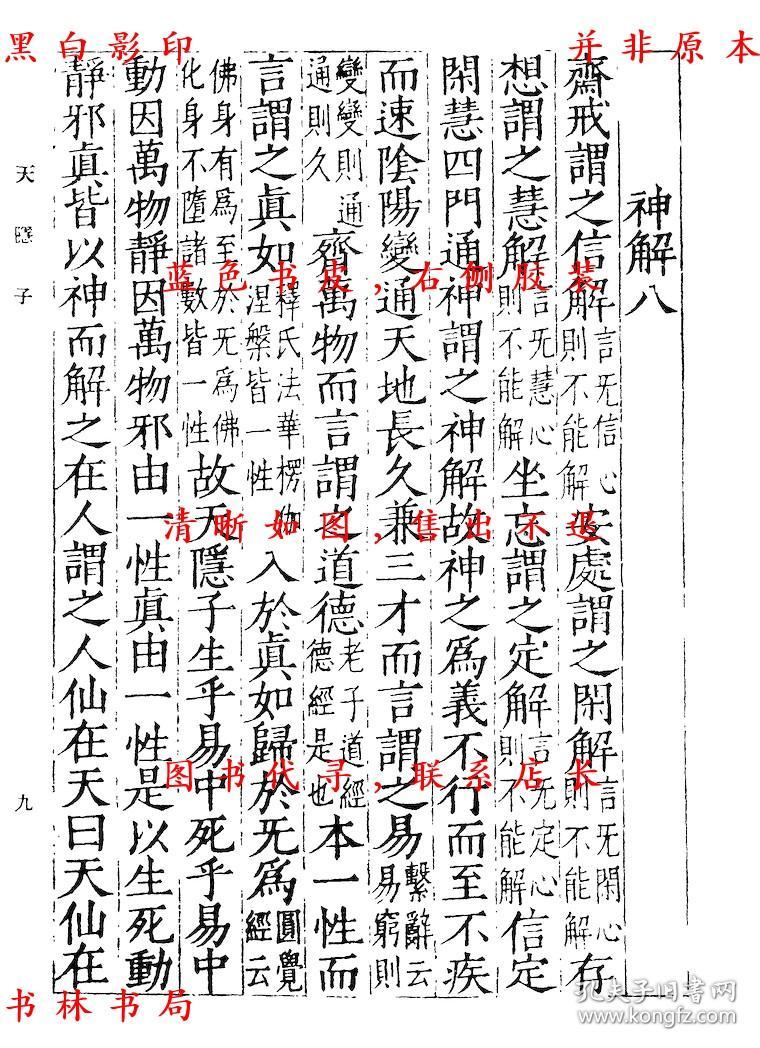 黑白影印
并非原本
神解八
齋戒謂之信解言无信心則不能解安處謂之閑解言无閑心則不能解存
想謂之慧解言无慧心則不能解坐忘謂之定解言无定心則不能解信定
閑慧四門通神謂之神解故神之爲義不行而至不疾
而速陰陽變通天地長久兼三才而言謂之易繫辭云易窮則
變變則通通則久齊萬物而言謂之道德老子道經德經是也本一性而
言謂之眞如釋氏法華楞伽涅槃皆一性入於眞如歸於无爲圓覺經云
佛身有爲至於无爲佛化身不墮諸數皆一性故天隱子生乎易中死乎易中
動因萬物靜因萬物邪由一性眞由一性是以生死動
靜邪眞皆以神而解之在人謂之人仙在天曰天仙在
天隱子
九
蓝色书皮，右侧胶装
清晰如图，售出不退
图书代寻，联系店长
书林书局
孔夫子旧书网
www.kongfz.com